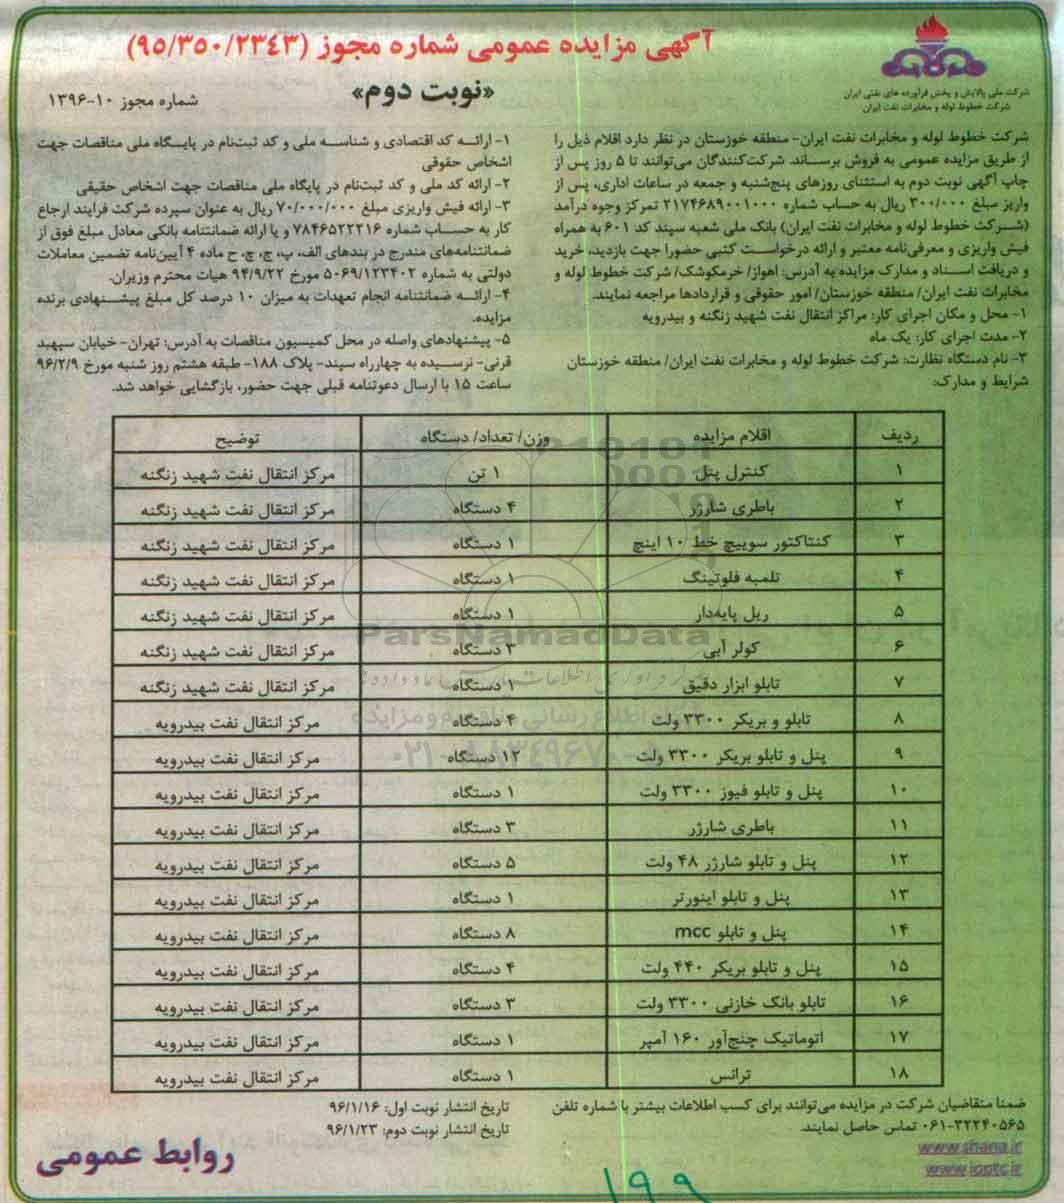 آگهی مزایده عمومی شماره مجوز (۹۵/۳۵۰/۲۳۴۳)
«نوبت دوم»
شماره مجوز ۱۰-۱۳۹۶
شرکت ملی پالایش و پخش فرآورده های نفتی ایران
شرکت خطوط لوله و مخابرات نفت ایران
شرکت خطوط لوله و مخابرات نفت ایران- منطقه خوزستان در نظر دارد اقلام ذیل را
از طریق مزایده عمومی به فروش برساند. شرکت‌کنندگان می‌توانند تا ۵ روز پس از
چاپ آگهی نوبت دوم به استثنای روزهای پنج‌شنبه و جمعه در ساعات اداری، پس از
واریز مبلغ ۳۰۰/۰۰۰ ریال به حساب شماره ۲۱۷۴۶۸۹۰۰۱۰۰۰ تمرکز وجوه درآمد
(شرکت خطوط لوله و مخابرات نفت ایران) بانک ملی شعبه سپند کد ۶۰۱ به همراه
فیش واریزی و معرفی‌نامه معتبر و ارائه درخواست کتبی حضورا جهت بازدید، خرید
و دریافت اسناد و مدارک مزایده به آدرس: اهواز/ خرمکوشک/ شرکت خطوط لوله و
مخابرات نفت ایران/ منطقه خوزستان/ امور حقوقی و قراردادها مراجعه نمایند.
۱- محل و مکان اجرای کار: مراکز انتقال نفت شهید زنگنه و بیدرویه
۲- مدت اجرای کار: یک ماه
۳- نام دستگاه نظارت: شرکت خطوط لوله و مخابرات نفت ایران/ منطقه خوزستان
شرایط و مدارک:
۱- ارائه کد اقتصادی و شناسه ملی و کد ثبت‌نام در پایگاه ملی مناقصات جهت
اشخاص حقوقی
۲- ارائه کد ملی و کد ثبت‌نام در پایگاه ملی مناقصات جهت اشخاص حقیقی
۳- ارائه فیش واریزی مبلغ ۷۰/۰۰۰/۰۰۰ ریال به عنوان سپرده شرکت فرایند ارجاع
کار به حساب شماره ۷۸۴۶۵۲۲۲۱۶ و یا ارائه ضمانتنامه بانکی معادل مبلغ فوق از
ضمانتنامه‌های مندرج در بندهای الف، پ، ج، چ، ح ماده ۴ آیین‌نامه تضمین معاملات
دولتی به شماره ۵۰۶۹/۱۲۳۴۰۲ مورخ ۹۴/۹/۲۲ هیات محترم وزیران.
۴- ارائه ضمانتنامه انجام تعهدات به میزان ۱۰ درصد کل مبلغ پیشنهادی برنده
مزایده.
۵- پیشنهادهای واصله در محل کمیسیون مناقصات به آدرس: تهران- خیابان سپهبد
قرنی- نرسیده به چهارراه سپند- پلاک ۱۸۸- طبقه هشتم روز شنبه مورخ ۹۶/۲/۹
ساعت ۱۵ با ارسال دعوتنامه قبلی جهت حضور، بازگشایی خواهد شد.
ردیف اقلام مزایده وزن/ تعداد/ دستگاه توضیح
۱ کنترل پنل ۱ تن مرکز انتقال نفت شهید زنگنه
۲ باطری شارژر ۴ دستگاه مرکز انتقال نفت شهید زنگنه
۳ کنتاکتور سوییچ خط ۱۰ اینچ ۱ دستگاه مرکز انتقال نفت شهید زنگنه
۴ تلمبه فلوتینگ ۱ دستگاه مرکز انتقال نفت شهید زنگنه
۵ ریل پایه‌دار ۱ دستگاه مرکز انتقال نفت شهید زنگنه
۶ کولر آبی ۳ دستگاه مرکز انتقال نفت شهید زنگنه
۷ تابلو ابزار دقیق ۱ دستگاه مرکز انتقال نفت شهید زنگنه
۸ تابلو و بریکر ۳۳۰۰ ولت ۴ دستگاه مرکز انتقال نفت بیدرویه
۹ پنل و تابلو بریکر ۳۳۰۰ ولت ۱۲ دستگاه مرکز انتقال نفت بیدرویه
۱۰ پنل و تابلو فیوز ۳۳۰۰ ولت ۱ دستگاه مرکز انتقال نفت بیدرویه
۱۱ باطری شارژر ۳ دستگاه مرکز انتقال نفت بیدرویه
۱۲ پنل و تابلو شارژر ۴۸ ولت ۵ دستگاه مرکز انتقال نفت بیدرویه
۱۳ پنل و تابلو اینورتر ۱ دستگاه مرکز انتقال نفت بیدرویه
۱۴ پنل و تابلو mcc ۸ دستگاه مرکز انتقال نفت بیدرویه
۱۵ پنل و تابلو بریکر ۴۴۰ ولت ۴ دستگاه مرکز انتقال نفت بیدرویه
۱۶ تابلو بانک خازنی ۳۳۰۰ ولت ۳ دستگاه مرکز انتقال نفت بیدرویه
۱۷ اتوماتیک چنج‌آور ۱۶۰ آمپر ۱ دستگاه مرکز انتقال نفت بیدرویه
۱۸ ترانس ۱ دستگاه مرکز انتقال نفت بیدرویه
ParsNamadData
۰۲۱-۸۸۳۴۹۶۷۰-۵
ضمنا متقاضیان شرکت در مزایده می‌توانند برای کسب اطلاعات بیشتر با شماره تلفن
۰۶۱-۳۲۲۴۰۵۶۵ تماس حاصل نمایند.
تاریخ انتشار نوبت اول: ۹۶/۱/۱۶
تاریخ انتشار نوبت دوم: ۹۶/۱/۲۳
www.shana.ir
www.ioptc.ir
روابط عمومی
۱۹۹